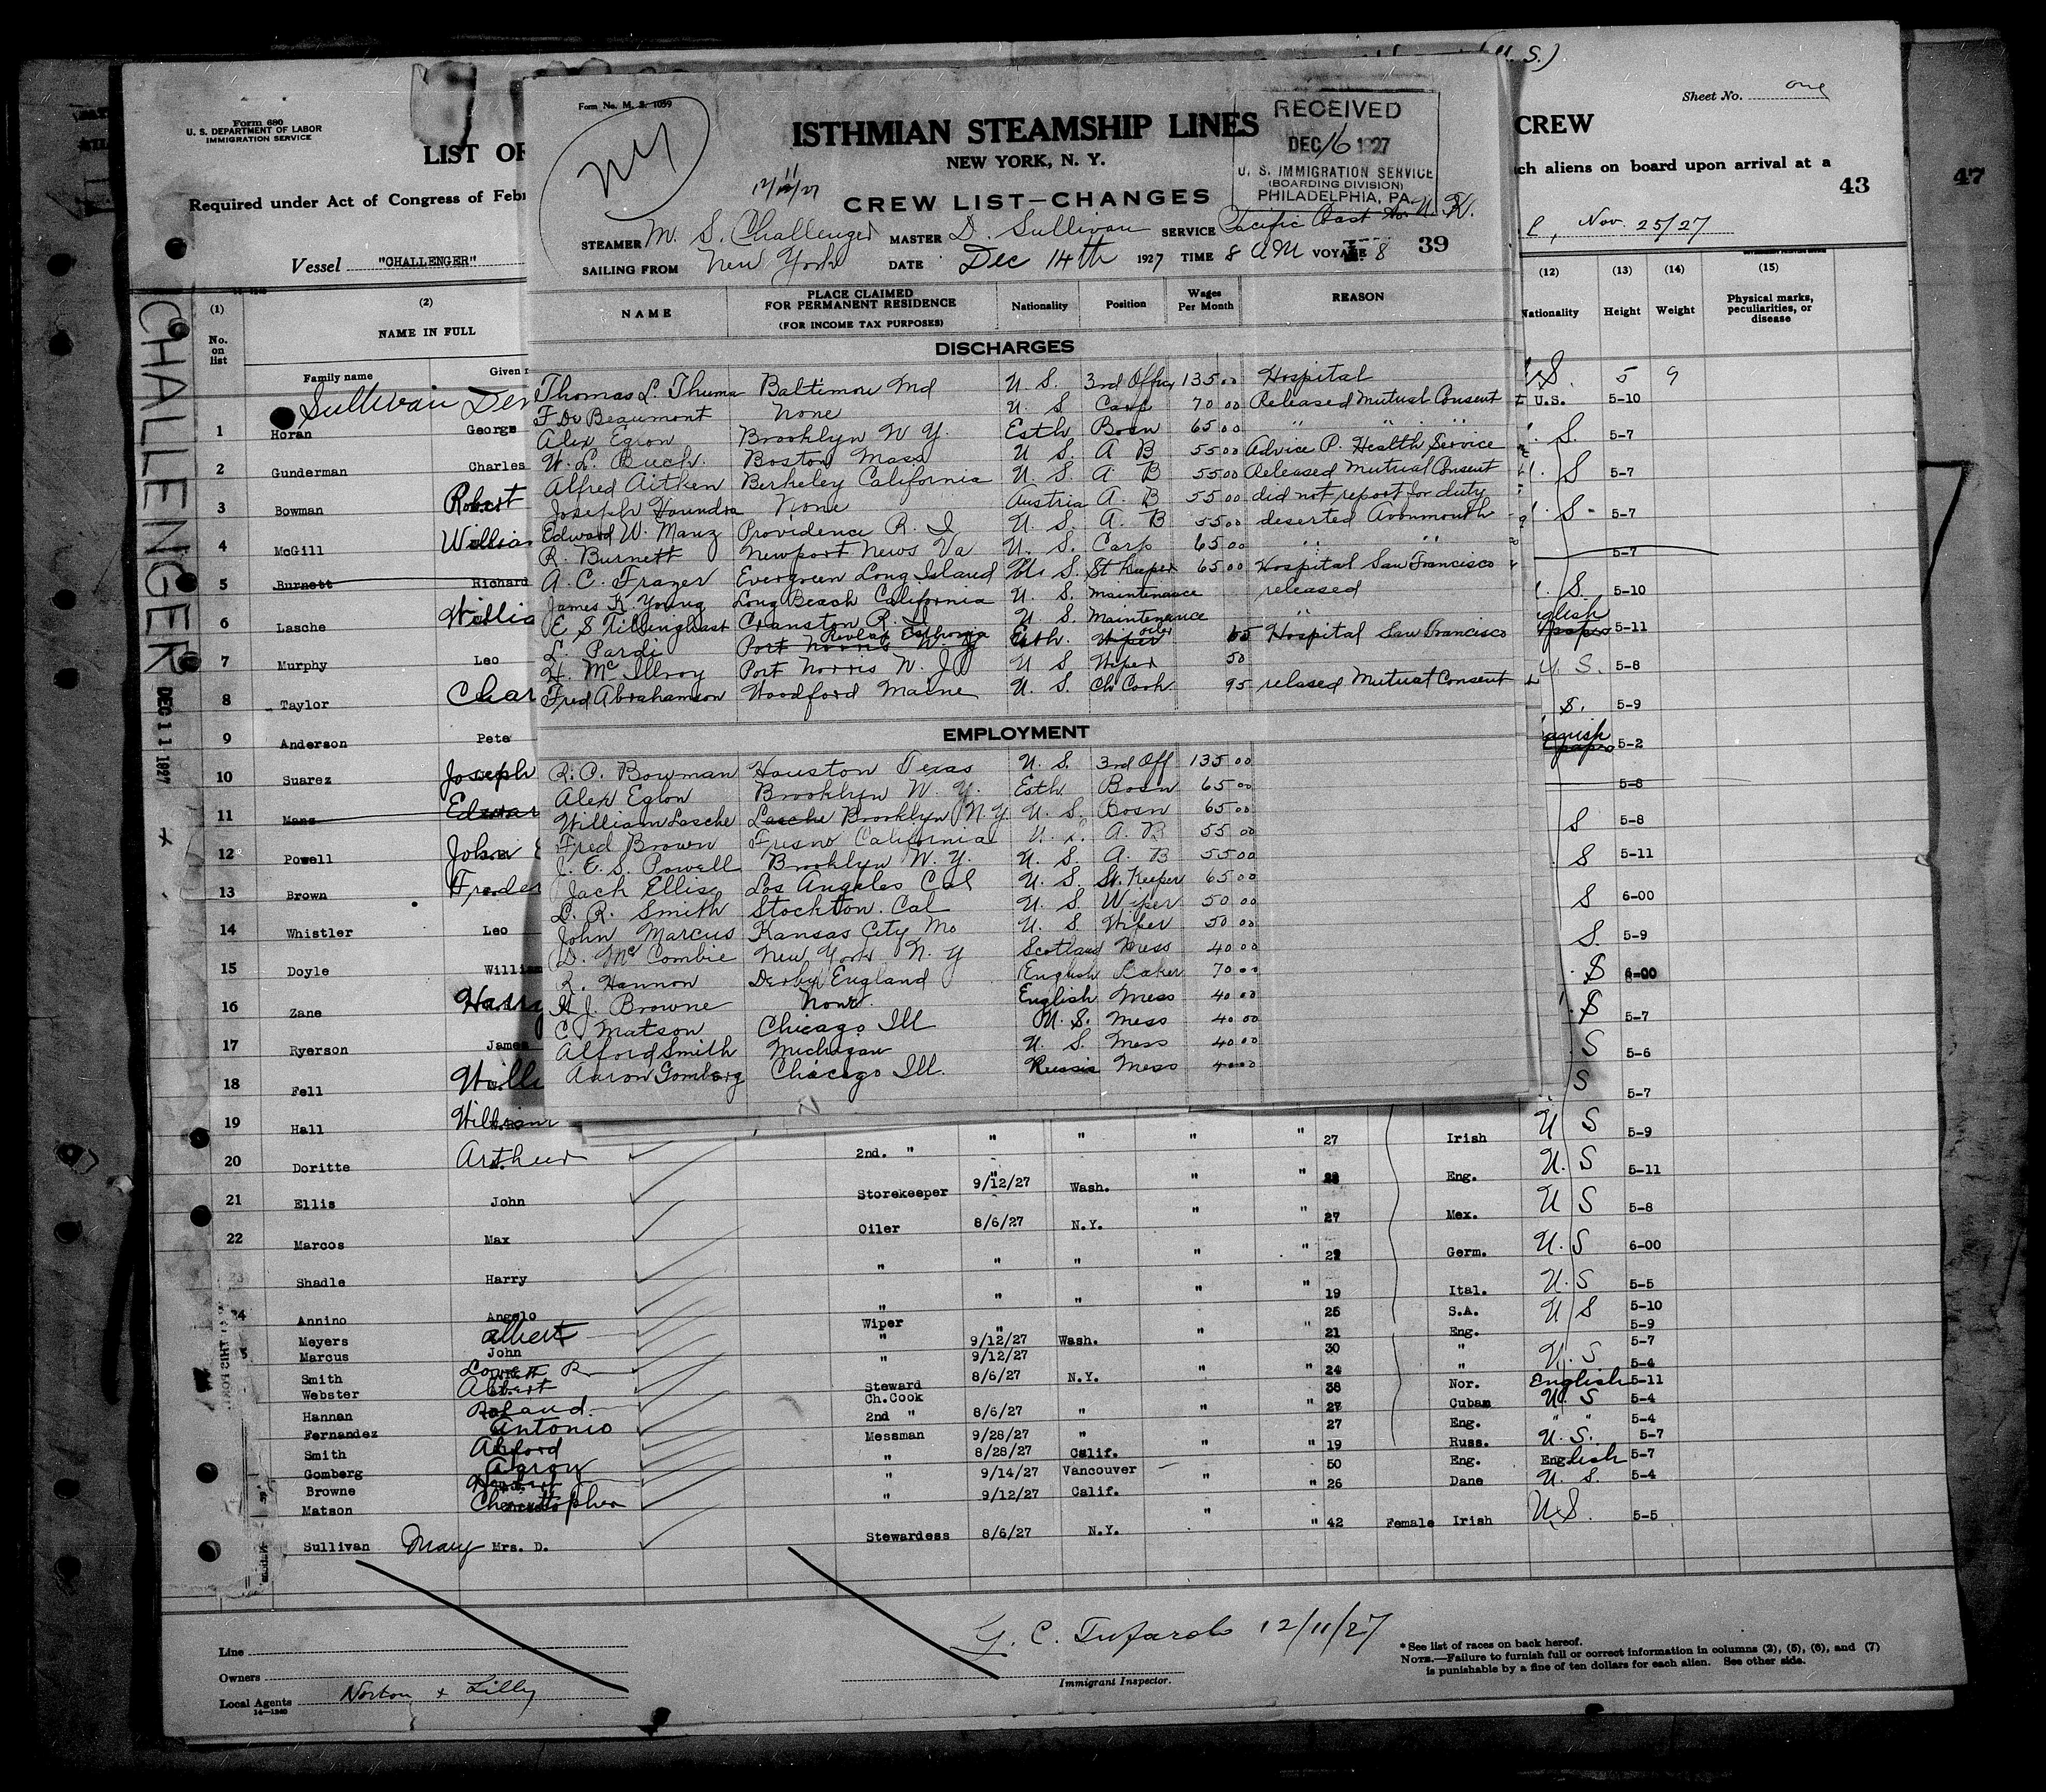 (U.S.)
Sheet No. one
Form 680
U. S. DEPARTMENT OF LABOR
IMMIGRATION SERVICE
LIST OF
CREW
Required under Act of Congress of Feb
ch aliens on board upon arrival at a
43
47
Nov. 25/27
Vessel "CHALLENGER"
CHALLENGER
DEC 11 1927
Form No. M. S. 1059
NY
ISTHMIAN STEAMSHIP LINES
NEW YORK, N. Y.
12/11/27
CREW LIST—CHANGES
RECEIVED
DEC 16 1927
U. S. IMMIGRATION SERVICE
(BOARDING DIVISION)
PHILADELPHIA, PA.
STEAMER M. S. Challenger MASTER D. Sullivan SERVICE Pacific Coast U.K.
SAILING FROM New York DATE Dec 14th 1927 TIME 8 AM VOYAGE 8 39
NAME PLACE CLAIMED FOR PERMANENT RESIDENCE (FOR INCOME TAX PURPOSES) Nationality Position Wages Per Month REASON
DISCHARGES
Thomas L. Thuma Baltimore Md U. S. 3rd Offic 135.00 Hospital
F De Beaumont None U S Carp 70 00 Released Mutual Consent
Alex Egron Brooklyn N Y. Esth Bosn 65 00 " " "
W. L. Buck. Boston Mass U S. A B 55 00 Advice P. Health Service
Alfred Aitken Berkeley California U S. A. B 55 00 Released Mutual Consent
Joseph None Austria A. B 55 00 did not report for duty
Edward W. Manz Providence R. I U. S. A. B 55 00 deserted Avonmouth
R. Burnett Newport News Va U. S. Carp 65 00 " "
A. C. Frazer Evergreen Long Island U. S. St Keeper 65 00 Hospital San Francisco
James K. Young Long Beach California U. S. Maintenance released
E S Tillinghast Cranston R. I U. S. Maintenance "
L. Pardi Port Norris N. J Revlae Esthonia Esth. Wiper oiler 65 Hospital San Francisco
H. McIllroy Port Norris N. J U S Wiper 50
Fred Abrahamson Woodford Maine U. S. Ch Cook 95 relased Mutual Consent
EMPLOYMENT
R. P. Bowman Houston Texas U. S. 3rd Off 135 00
Alex Eglon Brooklyn N. Y. Esth. Bosn 65 00
William Lasche Lasche Brooklyn N.Y. U. S. Bosn 65 00
Fred Brown Fresno California U. S. A. B 55 00
J. E. S. Powell Brooklyn N. Y. U. S. A. B 55 00
Jack Ellis Los Angeles Cal U. S. St. Keeper 65 00
L. R. Smith Stockton. Cal U. S. Wiper 50 00
John Marcus Kansas City Mo U. S. Wiper 50 00
D. McCombie New York N. Y Scotland Mess 40 00
R. Hannon Derby England English Baker 70 00
H J. Browne None. English Mess 40 00
C. Matson Chicago Ill U. S. Mess 40 00
Alford Smith Michigan U. S. Mess 40 00
Aaron Gomberg Chicago Ill. Russia Mess 40 00
(1) (2) (12) (13) (14) (15)
No. on list NAME IN FULL Nationality Height Weight Physical marks, peculiarities, or disease
Family name Given
Sullivan Den S. 5 9
1 Horan George U.S. 5-10
2 Gunderman Charles S. 5-7
3 Bowman Robert S 5-7
4 McGill William S- 5-7
5 Burnett Richard 5-7
6 Lasche Willia S. 5-10
7 Murphy Leo 5-11
8 Taylor Char U S. 5-8
9 Anderson Pete S. 5-9
10 Suarez Joseph 5-2
11 Manz Edwar 5-8
12 Powell John E S 5-8
13 Brown Freder S 5-11
14 Whistler Leo S 6-00
15 Doyle William S. 5-9
16 Zane Harry S 6-00
17 Ryerson James S 5-7
18 Fell Willi S 5-6
19 Hall William S 5-7
20 Doritte Arthur 2nd. " " " " " 27 Irish U S 5-9
21 Ellis John Storekeeper 9/12/27 Wash. " " 28 Eng. U. S 5-11
22 Marcos Max Oiler 8/6/27 N.Y. " " 27 Mex. U S 5-8
23 Shadle Harry " " " " " 29 Germ. U. S 6-00
24 Annino Angelo " " " " " 19 Ital. U. S 5-5
Meyers Albert Wiper " 25 S.A. U S 5-10
Marcus John " 9/12/27 Wash. " 21 Eng. 5-9
Smith Lowell R " 9/12/27 30 " 5-7
Webster Albert Steward 8/6/27 N.Y. " " 24 " U. S 5-4
Hannan Roland Ch.Cook 38 Nor. English 5-11
Fernandez Antonio 2nd " 8/6/27 " " " 27 Cuban U. S 5-4
Smith Alford Messman 9/28/27 " 27 Eng. " " 5-4
Gomberg Aaron " 8/28/27 Calif. " " 19 Russ. U. S. 5-7
Browne " 9/14/27 Vancouver 50 Eng. English 5-7
Matson Christopher " 9/12/27 Calif. " " 26 Dane U. S. 5-4
Sullivan Mary Mrs. D. Stewardess 8/6/27 N.Y. " " 42 Female Irish U.S. 5-5
Line
Owners
Local Agents Norton & Lilly
14—1240
G. C. Tufaro 12/11/27
Immigrant Inspector.
* See list of races on back hereof.
NOTE.—Failure to furnish full or correct information in columns (2), (5), (6), and (7)
is punishable by a fine of ten dollars for each alien. See other side.